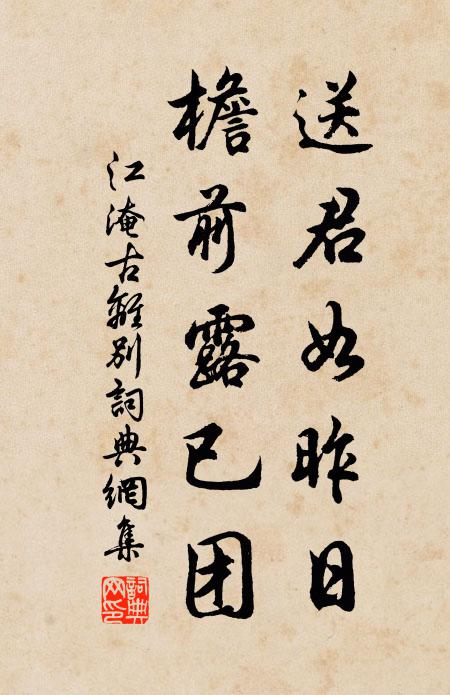 送君如昨日
檐前露已团
江淹古離别詞典網集
詞典
网印